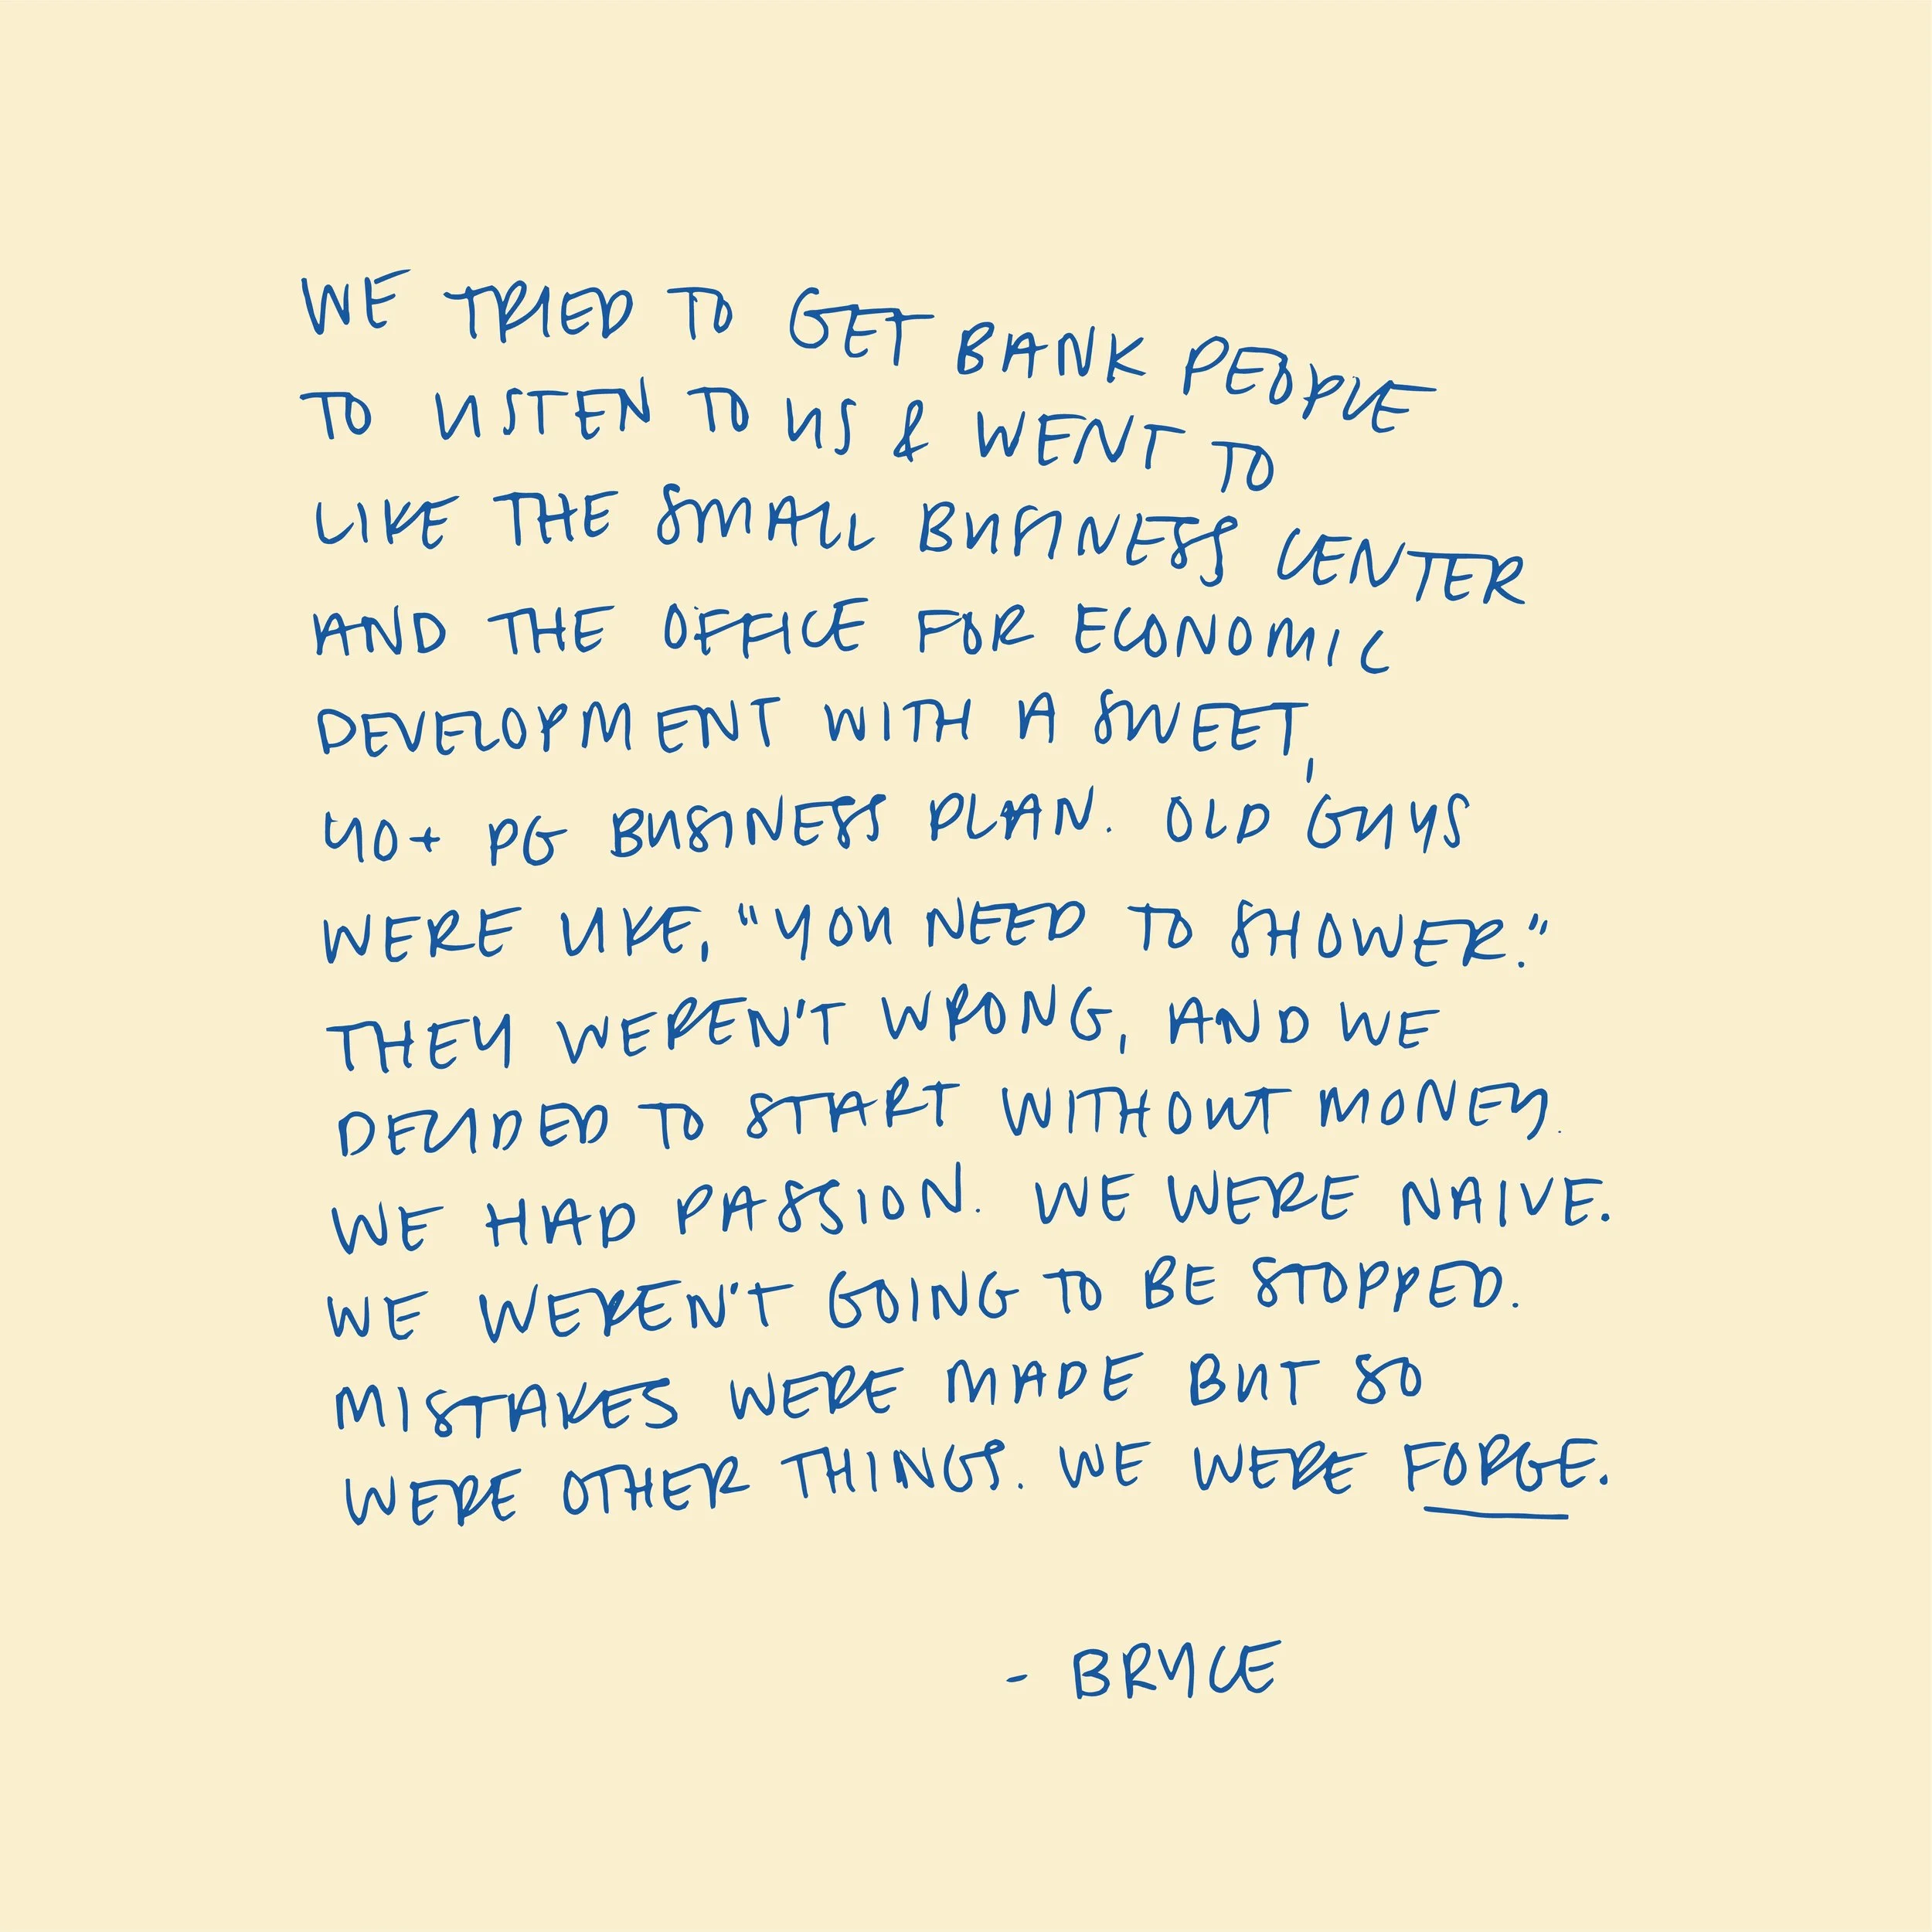 WE TRIED TO GET BANK PEOPLE
TO LISTEN TO US & WENT TO
LIKE THE SMALL BUSINESS CENTER
AND THE OFFICE FOR ECONOMIC
DEVELOPMENT WITH A SWEET,
40+ PG BUSINESS PLAN. OLD GUYS
WERE LIKE, "YOU NEED TO SHOWER."
THEY WEREN'T WRONG, AND WE
DECIDED TO START WITHOUT MONEY.
WE HAD PASSION. WE WERE NAIVE.
WE WEREN'T GOING TO BE STOPPED.
MISTAKES WERE MADE BUT SO
WERE OTHER THINGS. WE WERE FORGE.
- BRYCE